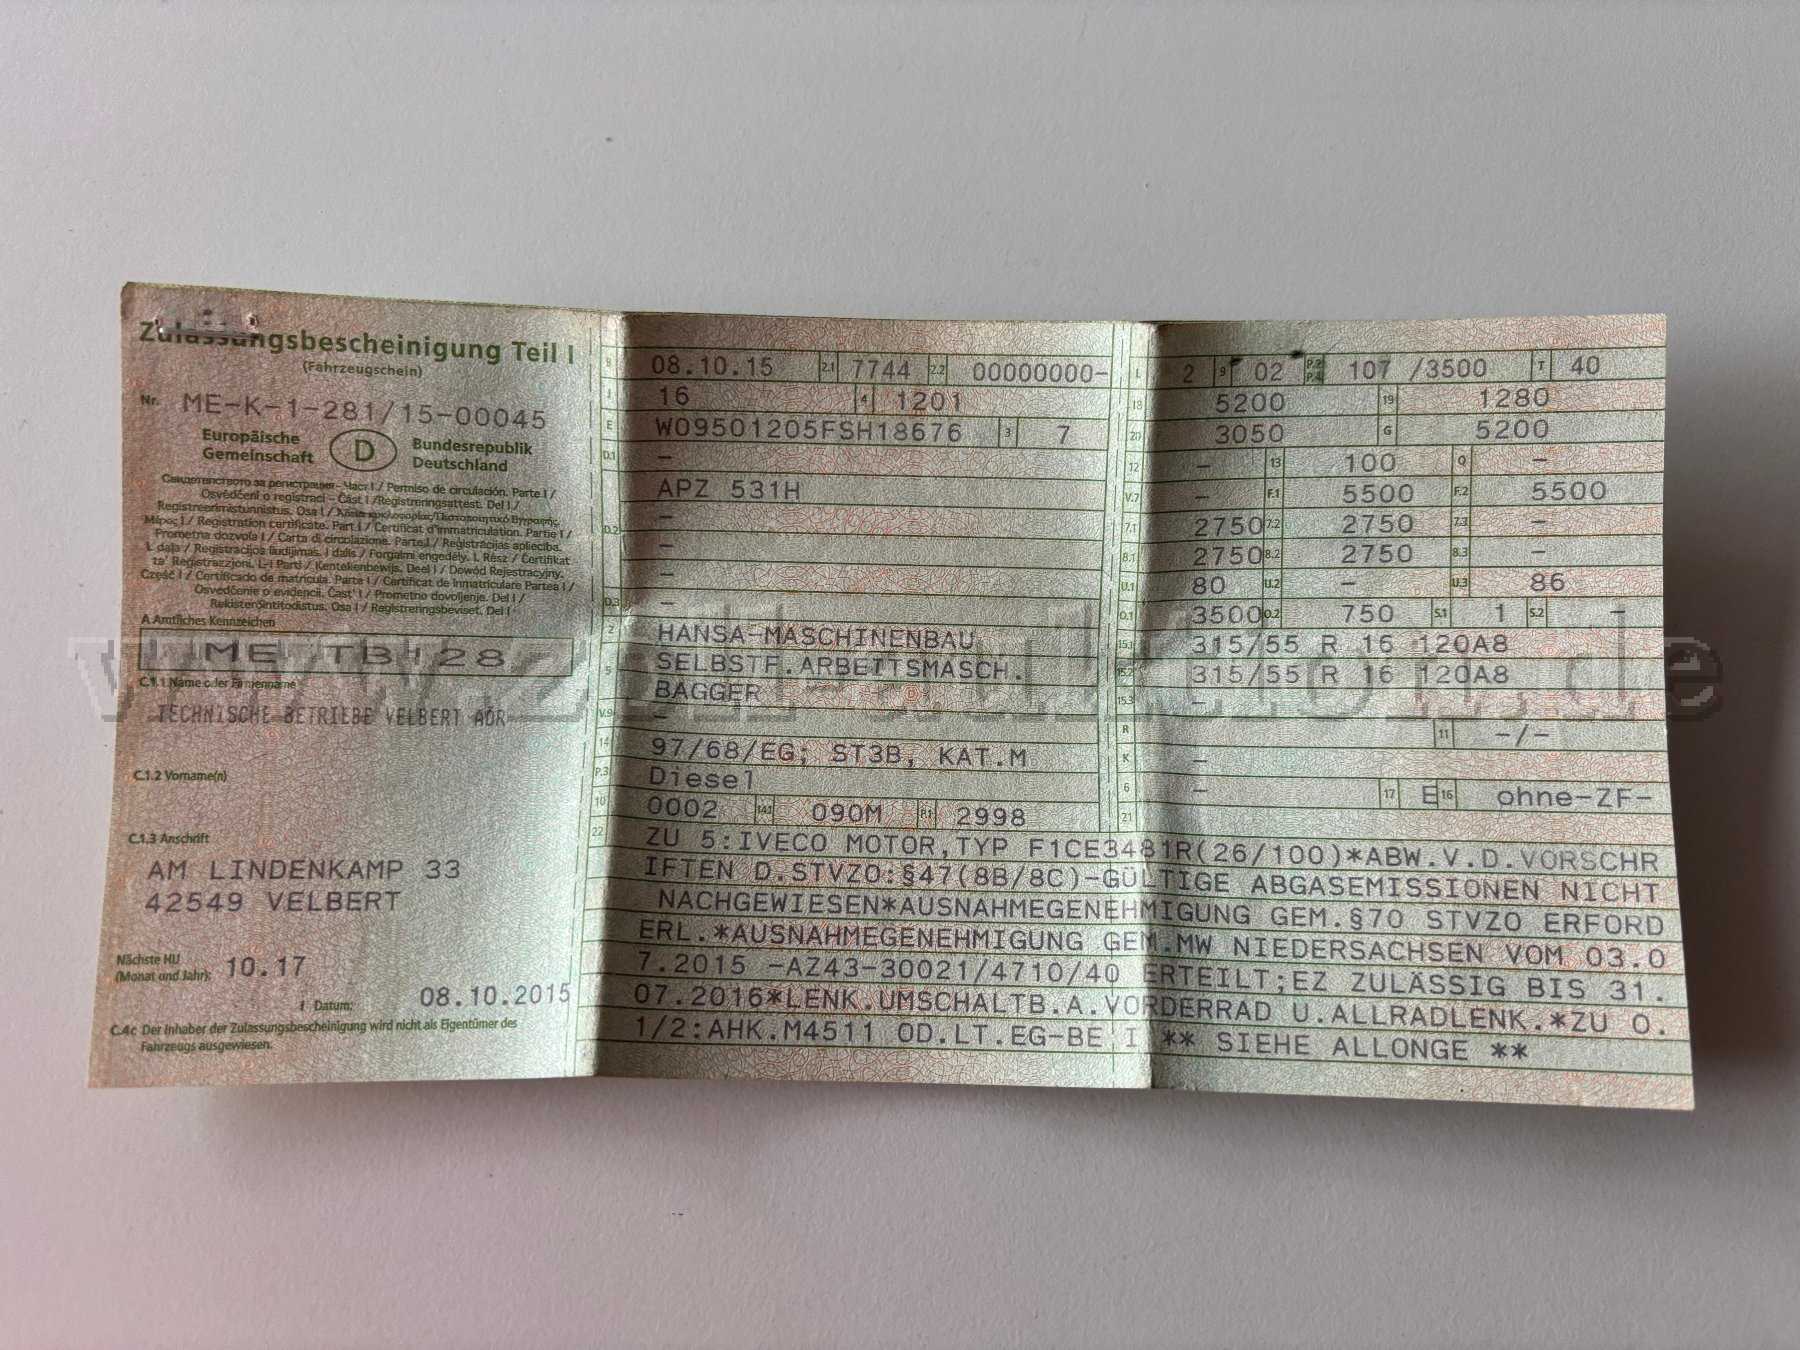 Zulassungsbescheinigung Teil I
(Fahrzeugschein)
Nr. ME-K-1-281/15-00045
Europäische Gemeinschaft D Bundesrepublik Deutschland
Свидетелството за регистрация- Част I / Permiso de circulación. Parte I /
Osvědčení o registraci - Část I / Registreringsattest. Del I /
Registreerimistunnistus. Osa I /
Μέρος I / Registration certificate. Part I / Certificat d'immatriculation. Partie I /
Prometna dozvola I / Carta di circolazione. Parte I / Reģistrācijas apliecība.
I. daļa / Registracijos liudijimas. I dalis / Forgalmi engedély. I. Rész / Ċertifikat
ta' Reġistrazzjoni. L-I Parti / Kentekenbewijs. Deel I / Dowód Rejestracyjny.
Część I / Certificado de matrícula. Parte I / Certificat de înmatriculare Partea I /
Osvedčenie o evidencii. Časť I / Prometno dovoljenje. Del I /
Rekisteröintitodistus. Osa I / Registreringsbeviset. Del I
A Amtliches Kennzeichen
ME TB 28
C.1.1 Name oder Firmenname
TECHNISCHE BETRIEBE VELBERT AÖR
C.1.2 Vorname(n)
C.1.3 Anschrift
AM LINDENKAMP 33
42549 VELBERT
Nächste HU
(Monat und Jahr): 10.17
I Datum: 08.10.2015
C.4c Der Inhaber der Zulassungsbescheinigung wird nicht als Eigentümer des
Fahrzeugs ausgewiesen.
B 08.10.15 2.1 7744 2.2 00000000-
J 16 4 1201
E W09501205FSH18676 3 7
D.1 -
APZ 531H
-
D.2 -
-
D.3 -
2 HANSA-MASCHINENBAU
5 SELBSTF.ARBEITSMASCH.
BAGGER
V.9 -
14 97/68/EG; ST3B, KAT.M
P.3 Diesel
10 0002 14.1 090M P.1 2998
L 2 9 02 P.2 P.4 107 /3500 T 40
18 5200 19 1280
20 3050 G 5200
12 - 13 100 Q -
V.7 - F.1 5500 F.2 5500
7.1 2750 7.2 2750 7.3 -
8.1 2750 8.2 2750 8.3 -
U.1 80 U.2 - U.3 86
O.1 3500 O.2 750 S.1 1 S.2 -
15.1 315/55 R 16 120A8
15.2 315/55 R 16 120A8
15.3 -
R 11 -/-
K -
6 - 17 E 16 ohne-ZF-
21
22 ZU 5:IVECO MOTOR,TYP F1CE3481R(26/100)*ABW.V.D.VORSCHR
IFTEN D.STVZO:§47(8B/8C)-GÜLTIGE ABGASEMISSIONEN NICHT
NACHGEWIESEN*AUSNAHMEGENEHMIGUNG GEM.§70 STVZO ERFORD
ERL.*AUSNAHMEGENEHMIGUNG GEM.MW NIEDERSACHSEN VOM 03.0
7.2015 -AZ43-30021/4710/40 ERTEILT;EZ ZULÄSSIG BIS 31.
07.2016*LENK.UMSCHALTB.A.VORDERRAD U.ALLRADLENK.*ZU O.
1/2:AHK.M4511 OD.LT.EG-BE I ** SIEHE ALLONGE **